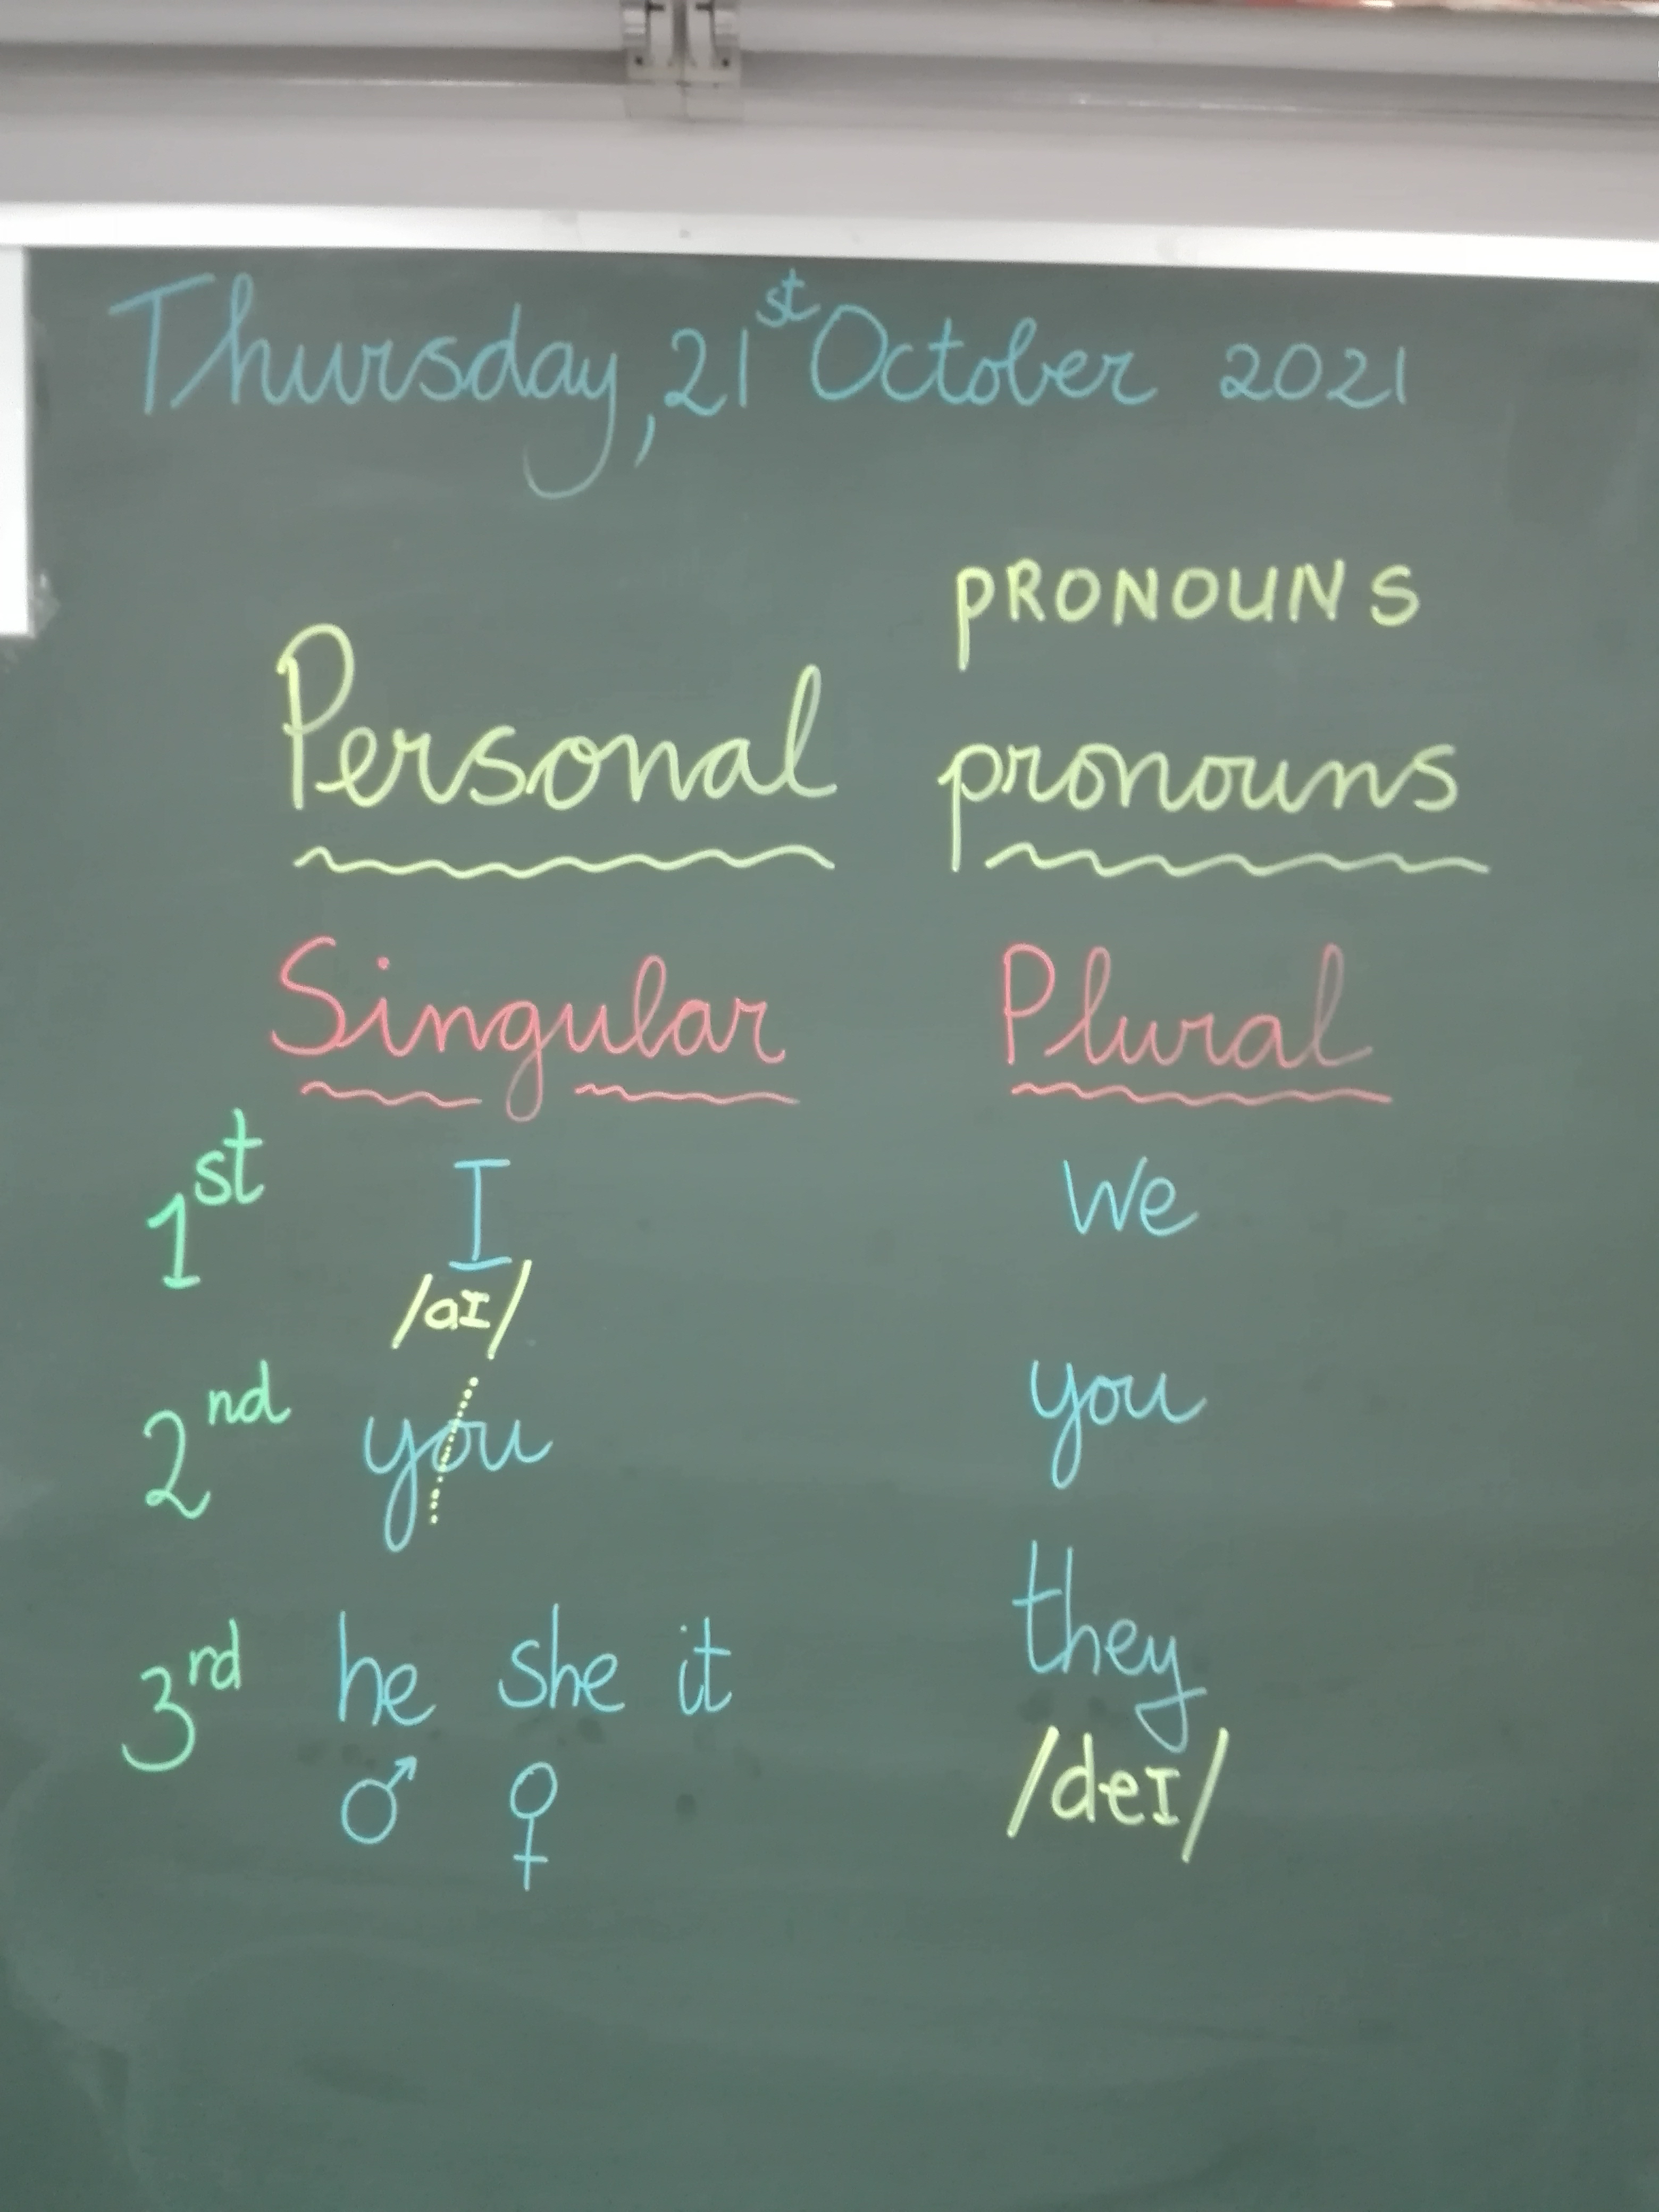 Thursday, 21st October 2021
PRONOUNS
Personal pronouns
Singular Plural
1st I We
/aɪ/
2nd you you
3rd he she it they
♂ ♀ /deɪ/